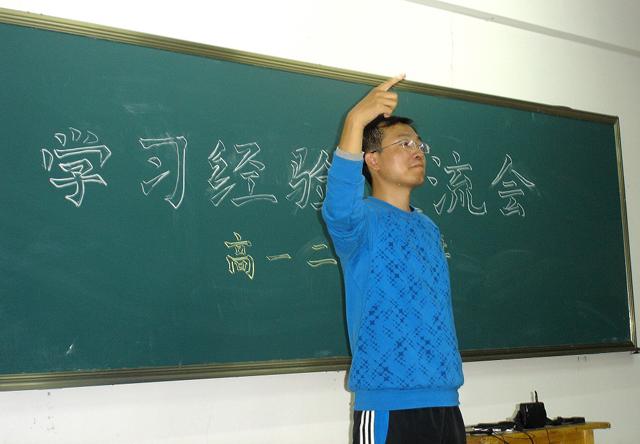 学习经验 流会
高一二